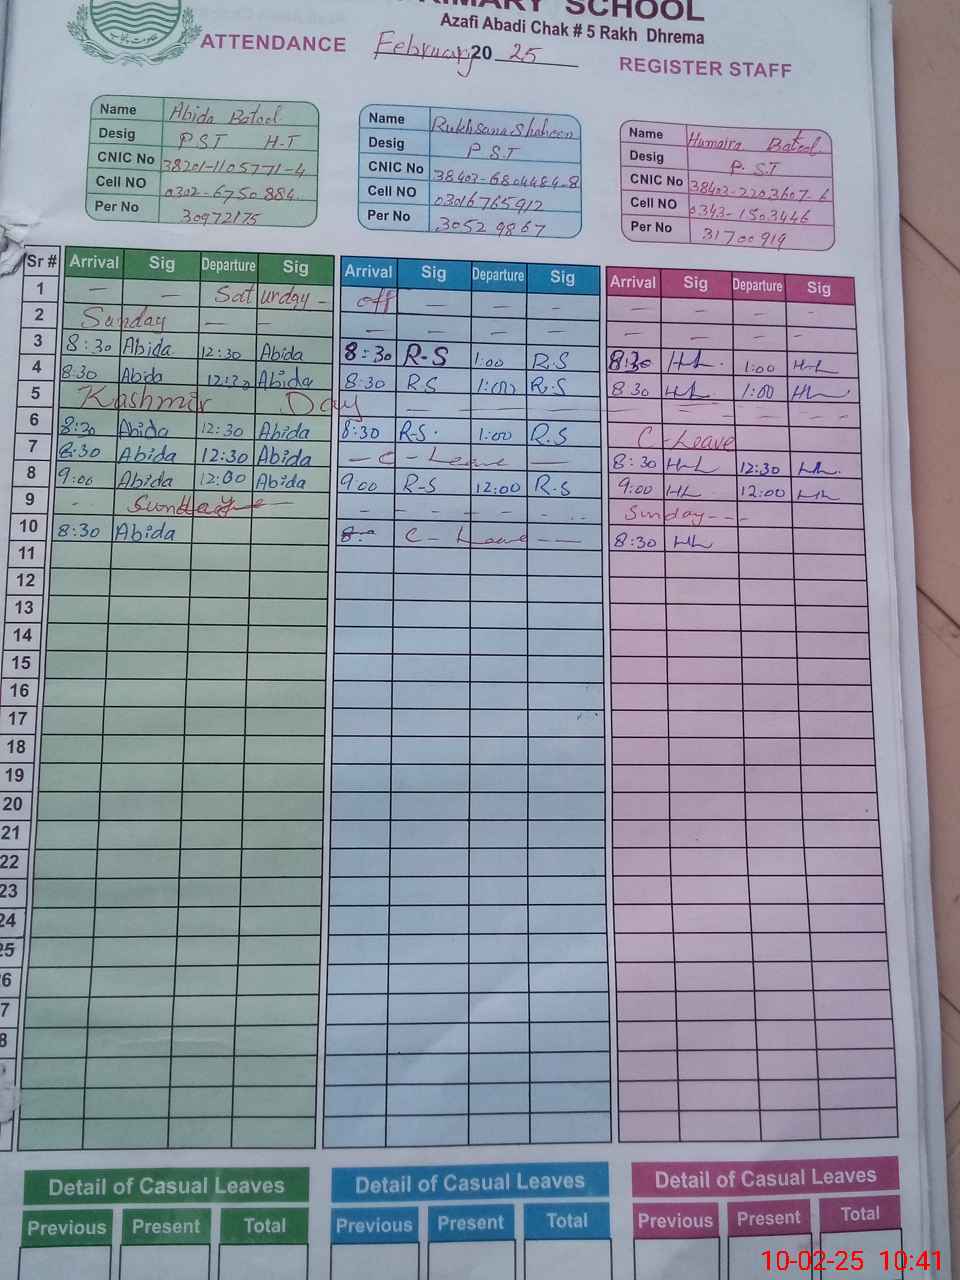 PRIMARY SCHOOL
Azafi Abadi Chak # 5 Rakh Dhrema
ATTENDANCE February 20 25 REGISTER STAFF
Name Abida Batool
Desig P.S.T H.T
CNIC No 38201-1105771-4
Cell NO 0302-6750884
Per No 30972175
Name Rukhsana Shaheen
Desig P.S.T
CNIC No 38403-6804484-8
Cell NO 03016765912
Per No 30529867
Name Humaira Batool
Desig P.S.T
CNIC No 38403-2203607-6
Cell NO 0343-1503446
Per No 31700919
Sr # Arrival Sig Departure Sig Arrival Sig Departure Sig Arrival Sig Departure Sig
1 — — Saturday - off — — — — — - -
2 Sunday — - — — — — — - - -
3 8:30 Abida 12:30 Abida 8:30 R-S 1:00 R.S 8:30 HL 1:00 HL
4 8:30 Abida 12:30 Abida 8:30 RS 1:00 R.S 8:30 HL 1:00 HL
5 Kashmir Day
6 8:30 Abida 12:30 Abida 8:30 R-S. 1:00 R.S C-Leave
7 8:30 Abida 12:30 Abida — C - Leave — 8:30 HL 12:30 HL
8 9:00 Abida 12:00 Abida 9:00 R-S 12:00 R-S 9:00 HL 12:00 HL
9 - Sunday - - - - - - Sunday - - -
10 8:30 Abida 8:- C - Leave - — 8:30 HL
11
12
13
14
15
16
17
18
19
20
21
22
23
24
25
6
7
8
Detail of Casual Leaves Detail of Casual Leaves Detail of Casual Leaves
Previous Present Total Previous Present Total Previous Present Total
10-02-25 10:41